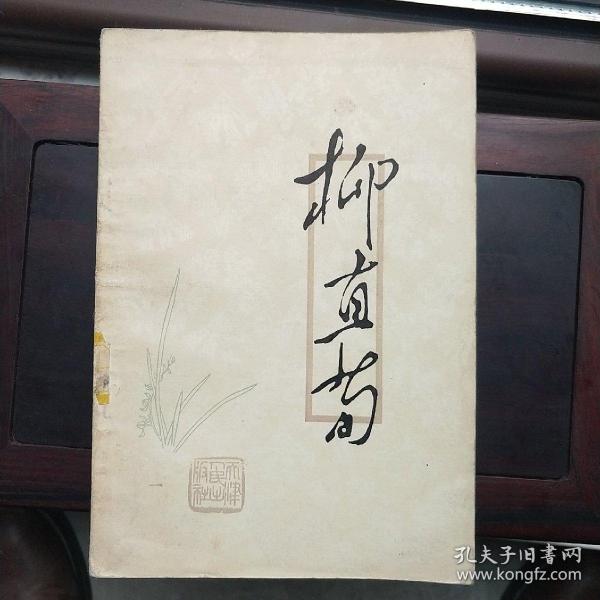 柳直荀
天津人民出版社
孔夫子旧書网
www.kongfz.com